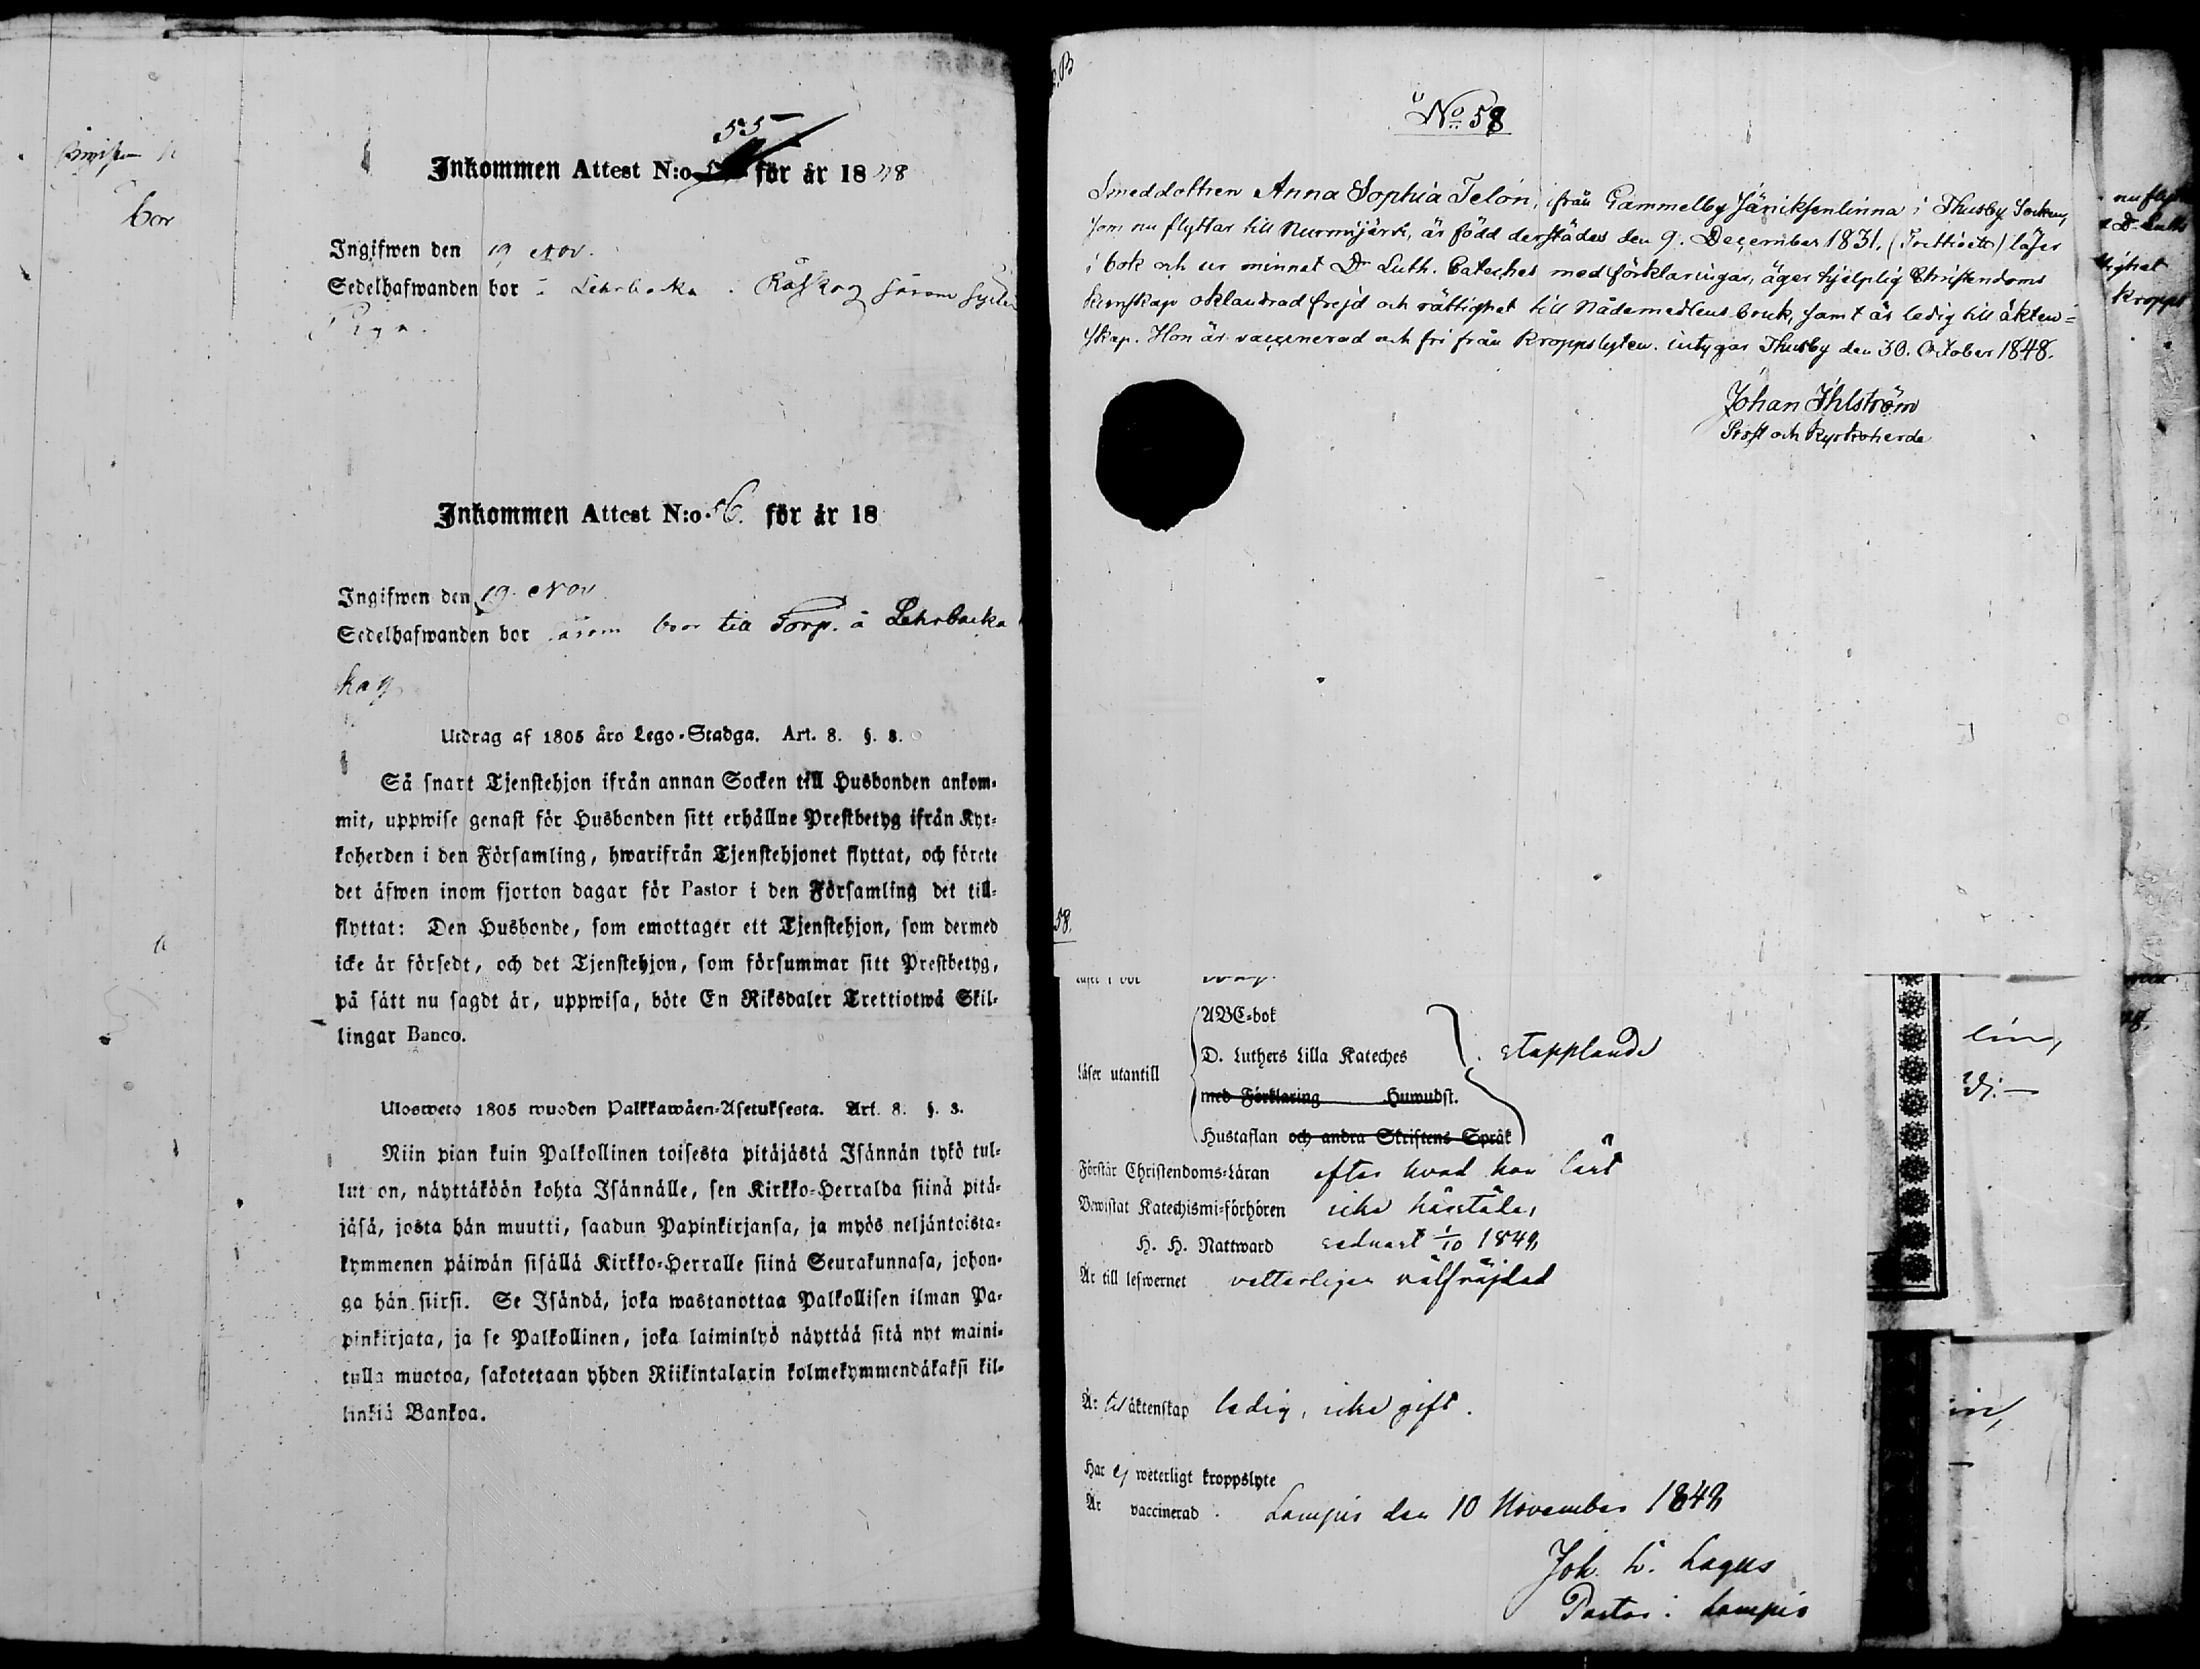 bor
55
Inkommen Attest N:o för år 1848
Ingifwen den 19 Nov.
Sedelhafwanden bor i Lehrbacka i Råskog såsom
Piga.
Inkommen Attest N:o 56. för år 18
Ingifwen den 19. Nov
Sedelhafwanden bor såsom bror till Torp. å Lehrbacka
kog
Utdrag af 1805 års Lego-Stadga. Art. 8. §. 3.
Så snart Tjenstehjon ifrån annan Socken till Husbonden ankom-
mit, uppwise genast för Husbonden sitt erhållne Prestbetyg ifrån Kyr-
koherden i den Församling, hwarifrån Tjenstehjonet flyttat, och förete
det äfwen inom fjorton dagar för Pastor i den Församling det till-
flyttat: Den Husbonde, som emottager ett Tjenstehjon, som dermed
icke är försedt, och det Tjenstehjon, som försummar sitt Prestbetyg,
på sätt nu sagdt är, uppwisa, böte En Riksdaler Trettiotwå Skil-
lingar Banco.
Ulosweto 1805 wuoden Palkkawäen-Asetuksesta. Art. 8. §. 3.
Niin pian kuin Palkollinen toisesta pitäjästä Isännän tykö tul-
lut on, näyttäköön kohta Isännälle, sen Kirkko-Herralda siinä pitä-
jäsä, josta hän muutti, saadun Papinkirjansa, ja myös neljäntoista-
kymmenen päiwän sisällä Kirkko-Herralle siinä Seurakunnasa, johon-
ga hän siirsi. Se Isändä, joka wastanottaa Palkollisen ilman Pa-
pinkirjata, ja se Palkollinen, joka laiminlyö näyttää sitä nyt maini-
tulla muotoa, sakotetaan yhden Riikintalarin kolmekymmendäkaksi kil-
linkiä Bankoa.
No 58
Smeddottren Anna Sophia Telón, från Gammelby Jäniksenlinna i Thusby Socken,
som nu flyttar till Nurmijärvi, är född derstädes den 9. December 1831. (Trettioett) läser
i bok och ur minnet Dr Luth. Cateches med förklaringar, äger hjelplig Christendoms
kunskap oklandrad frejd och rättighet till Nådemedlens bruk, samt är ledig till äkten=
skap. Hon är vaccinerad och fri från kroppslyten. intygar Thusby den 30. October 1848.
Johan Ihlström
Prost och Kyrkoherde
58.
läser utantill
ABC-bok
D. Luthers Lilla Kateches
med Förklaring Huwudst.
Hustaflan och andra Skriftens Språk
stapplande
Förstår Christendoms-Läran efter hvad han lärt
Bewistat Katechismi-förhören icke härstädes
H. H. Nattward sednast 1/10 1848
Är till lefwernet vetterligen välfräjdad
Är till äktenskap ledig, icke gift.
Har ej weterligt kroppslyte
Är vaccinerad. Lampis den 10 November 1848
Joh. W. Lagus
Pastor i Lampis
nu flyt
Dr Luth
kropps